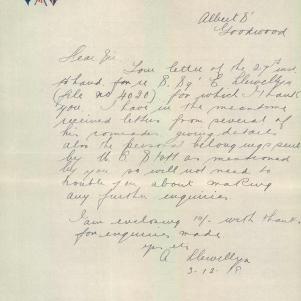 Albert St
Goodwood
Dear Sir
Your letter of the 27th inst
to hand for re
(file no 4020) for which I thank
you I have in the meantime
received letters from several of
his comrades giving details
also the personal belongings sent
by the as mentioned
by you so will not need to
trouble you about making
any further enquiries.
I am enclosing 10/- with thanks
for enquiries made
yrs etc
A Llewellyn
3-12-